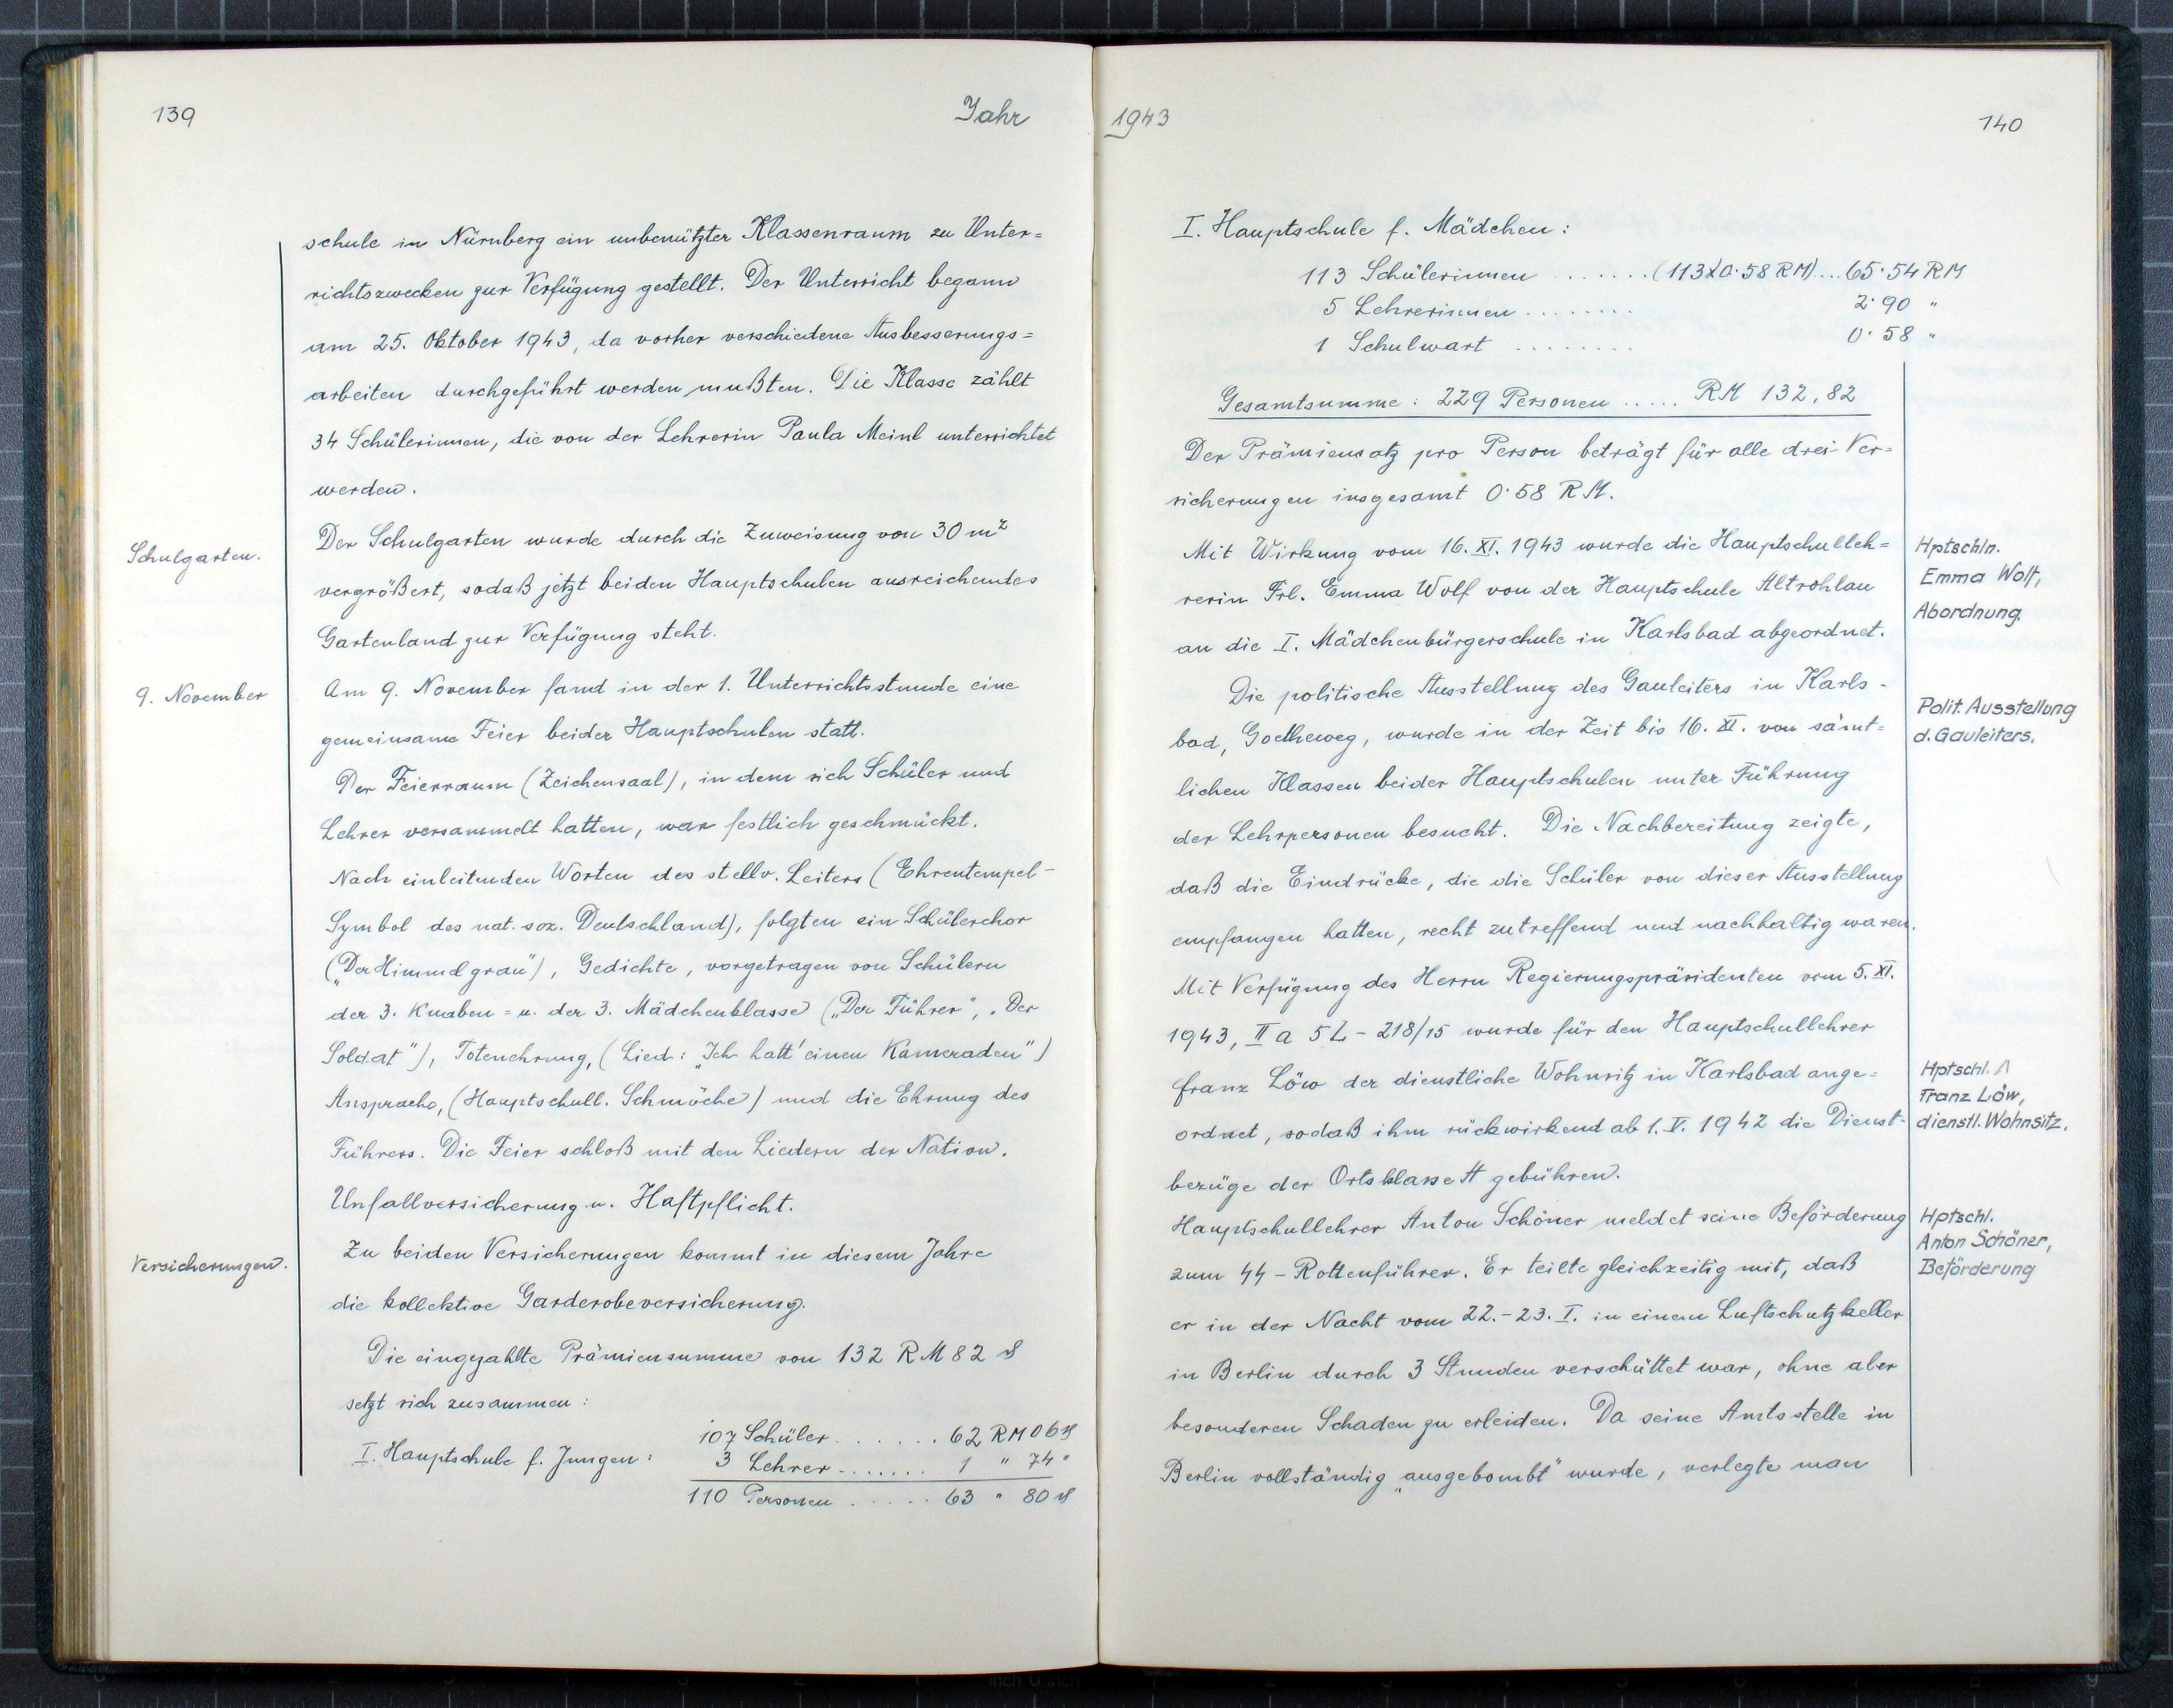 139
Jahr
schule in Nürnberg ein unbenützter Klassenraum zu Unter=
richtszwecken zur Verfügung gestellt. Der Unterricht begann
am 25. Oktober 1943, da vorher verschiedene Ausbesserungs=
arbeiten durchgeführt werden mußten. Die Klasse zählt
34 Schülerinnen, die von der Lehrerin Paula Meinl unterrichtet
werden.
Schulgarten.
Der Schulgarten wurde durch die Zuweisung von 30 m²
vergrößert, sodaß jetzt beiden Hauptschulen ausreichendes
Gartenland zur Verfügung steht.
9. November
Am 9. November fand in der 1. Unterrichtsstunde eine
gemeinsame Feier beider Hauptschulen statt.
Der Feierraum (Zeichensaal), in dem sich Schüler und
Lehrer versammelt hatten, war festlich geschmückt.
Nach einleitenden Worten des stellv. Leiters (Ehrentempel-
Symbol des nat. soz. Deutschland), folgten ein Schülerchor
(„Der Himmel grau"), Gedichte, vorgetragen von Schülern
der 3. Knaben= u. der 3. Mädchenklasse („Der Führer", „Der
Soldat"), Totenehrung, (Lied: „Ich hatt' einen Kameraden")
Ansprache, (Hauptschull. Schmöche) und die Ehrung des
Führers. Die Feier schloß mit den Liedern der Nation.
Unfallversicherung u. Haftpflicht.
Versicherungen.
Zu beiden Versicherungen kommt in diesem Jahre
die kollektive Garderobeversicherung.
Die eingezahlte Prämiensumme von 132 RM 82 ₰
setzt sich zusammen:
I. Hauptschule f. Jungen:
107 Schüler. . . . . . . 62 RM 06 ₰
3 Lehrer - . . . . . . 1 " 74 "
110 Personen . . . . . 63 " 80 ₰
1943
140
I. Hauptschule f. Mädchen:
113 Schülerinnen . . . . . . . (113 x 0·58 RM) ... 65·54 RM
5 Lehrerinnen . . . . . . . . 2·90 "
1 Schulwart . . . . . . . . 0·58 "
Gesamtsumme: 229 Personen ..... RM 132,82
Der Prämiensatz pro Person beträgt für alle drei Ver=
sicherungen insgesamt 0·58 RM.
Mit Wirkung vom 16. XI. 1943 wurde die Hauptschulleh=
rerin Frl. Emma Wolf von der Hauptschule Altrohlau
an die I. Mädchenbürgerschule in Karlsbad abgeordnet.
Hptschln.
Emma Wolf,
Abordnung.
Die politische Ausstellung des Gauleiters in Karls-
bad, Goetheweg, wurde in der Zeit bis 16. XI. von sämt=
lichen Klassen beider Hauptschulen unter Führung
der Lehrpersonen besucht. Die Nachbereitung zeigte,
daß die Eindrücke, die die Schüler von dieser Ausstellung
empfangen hatten, recht zutreffend und nachhaltig waren.
Polit. Ausstellung
d. Gauleiters.
Mit Verfügung des Herrn Regierungspräsidenten vom 5. XI.
1943, II a 5 L - 218/15 wurde für den Hauptschullehrer
Franz Löw der dienstliche Wohnsitz in Karlsbad ange=
ordnet, sodaß ihm rückwirkend ab 1. V. 1942 die Dienst-
bezüge der Ortsklasse A gebühren.
Hptschl.
Franz Löw,
dienstl. Wohnsitz.
Hauptschullehrer Anton Schöner meldet seine Beförderung
zum SS - Rottenführer. Er teilte gleichzeitig mit, daß
er in der Nacht vom 22. - 23. I. in einem Luftschutzkeller
in Berlin durch 3 Stunden verschüttet war, ohne aber
besonderen Schaden zu erleiden. Da seine Amtsstelle in
Berlin vollständig „ausgebombt" wurde, verlegte man
Hptschl.
Anton Schöner,
Beförderung